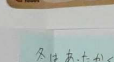 冬はあったかく